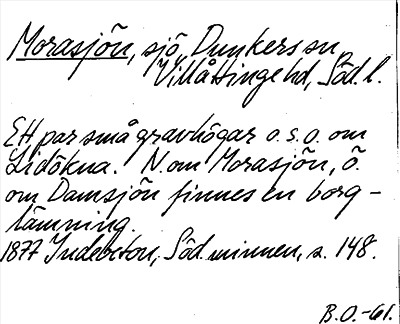 Morasjön, sjö, Dunkers sn,
Villåttinge hd, Söd. l.
Ett par små gravhögar o.s.o. om
Lidökna. N. om Morasjön, ö.
om Damsjön finnes en borg-
lämning.
1877 Indebetou, Söd. minnen, s. 148.
B.O.-61.